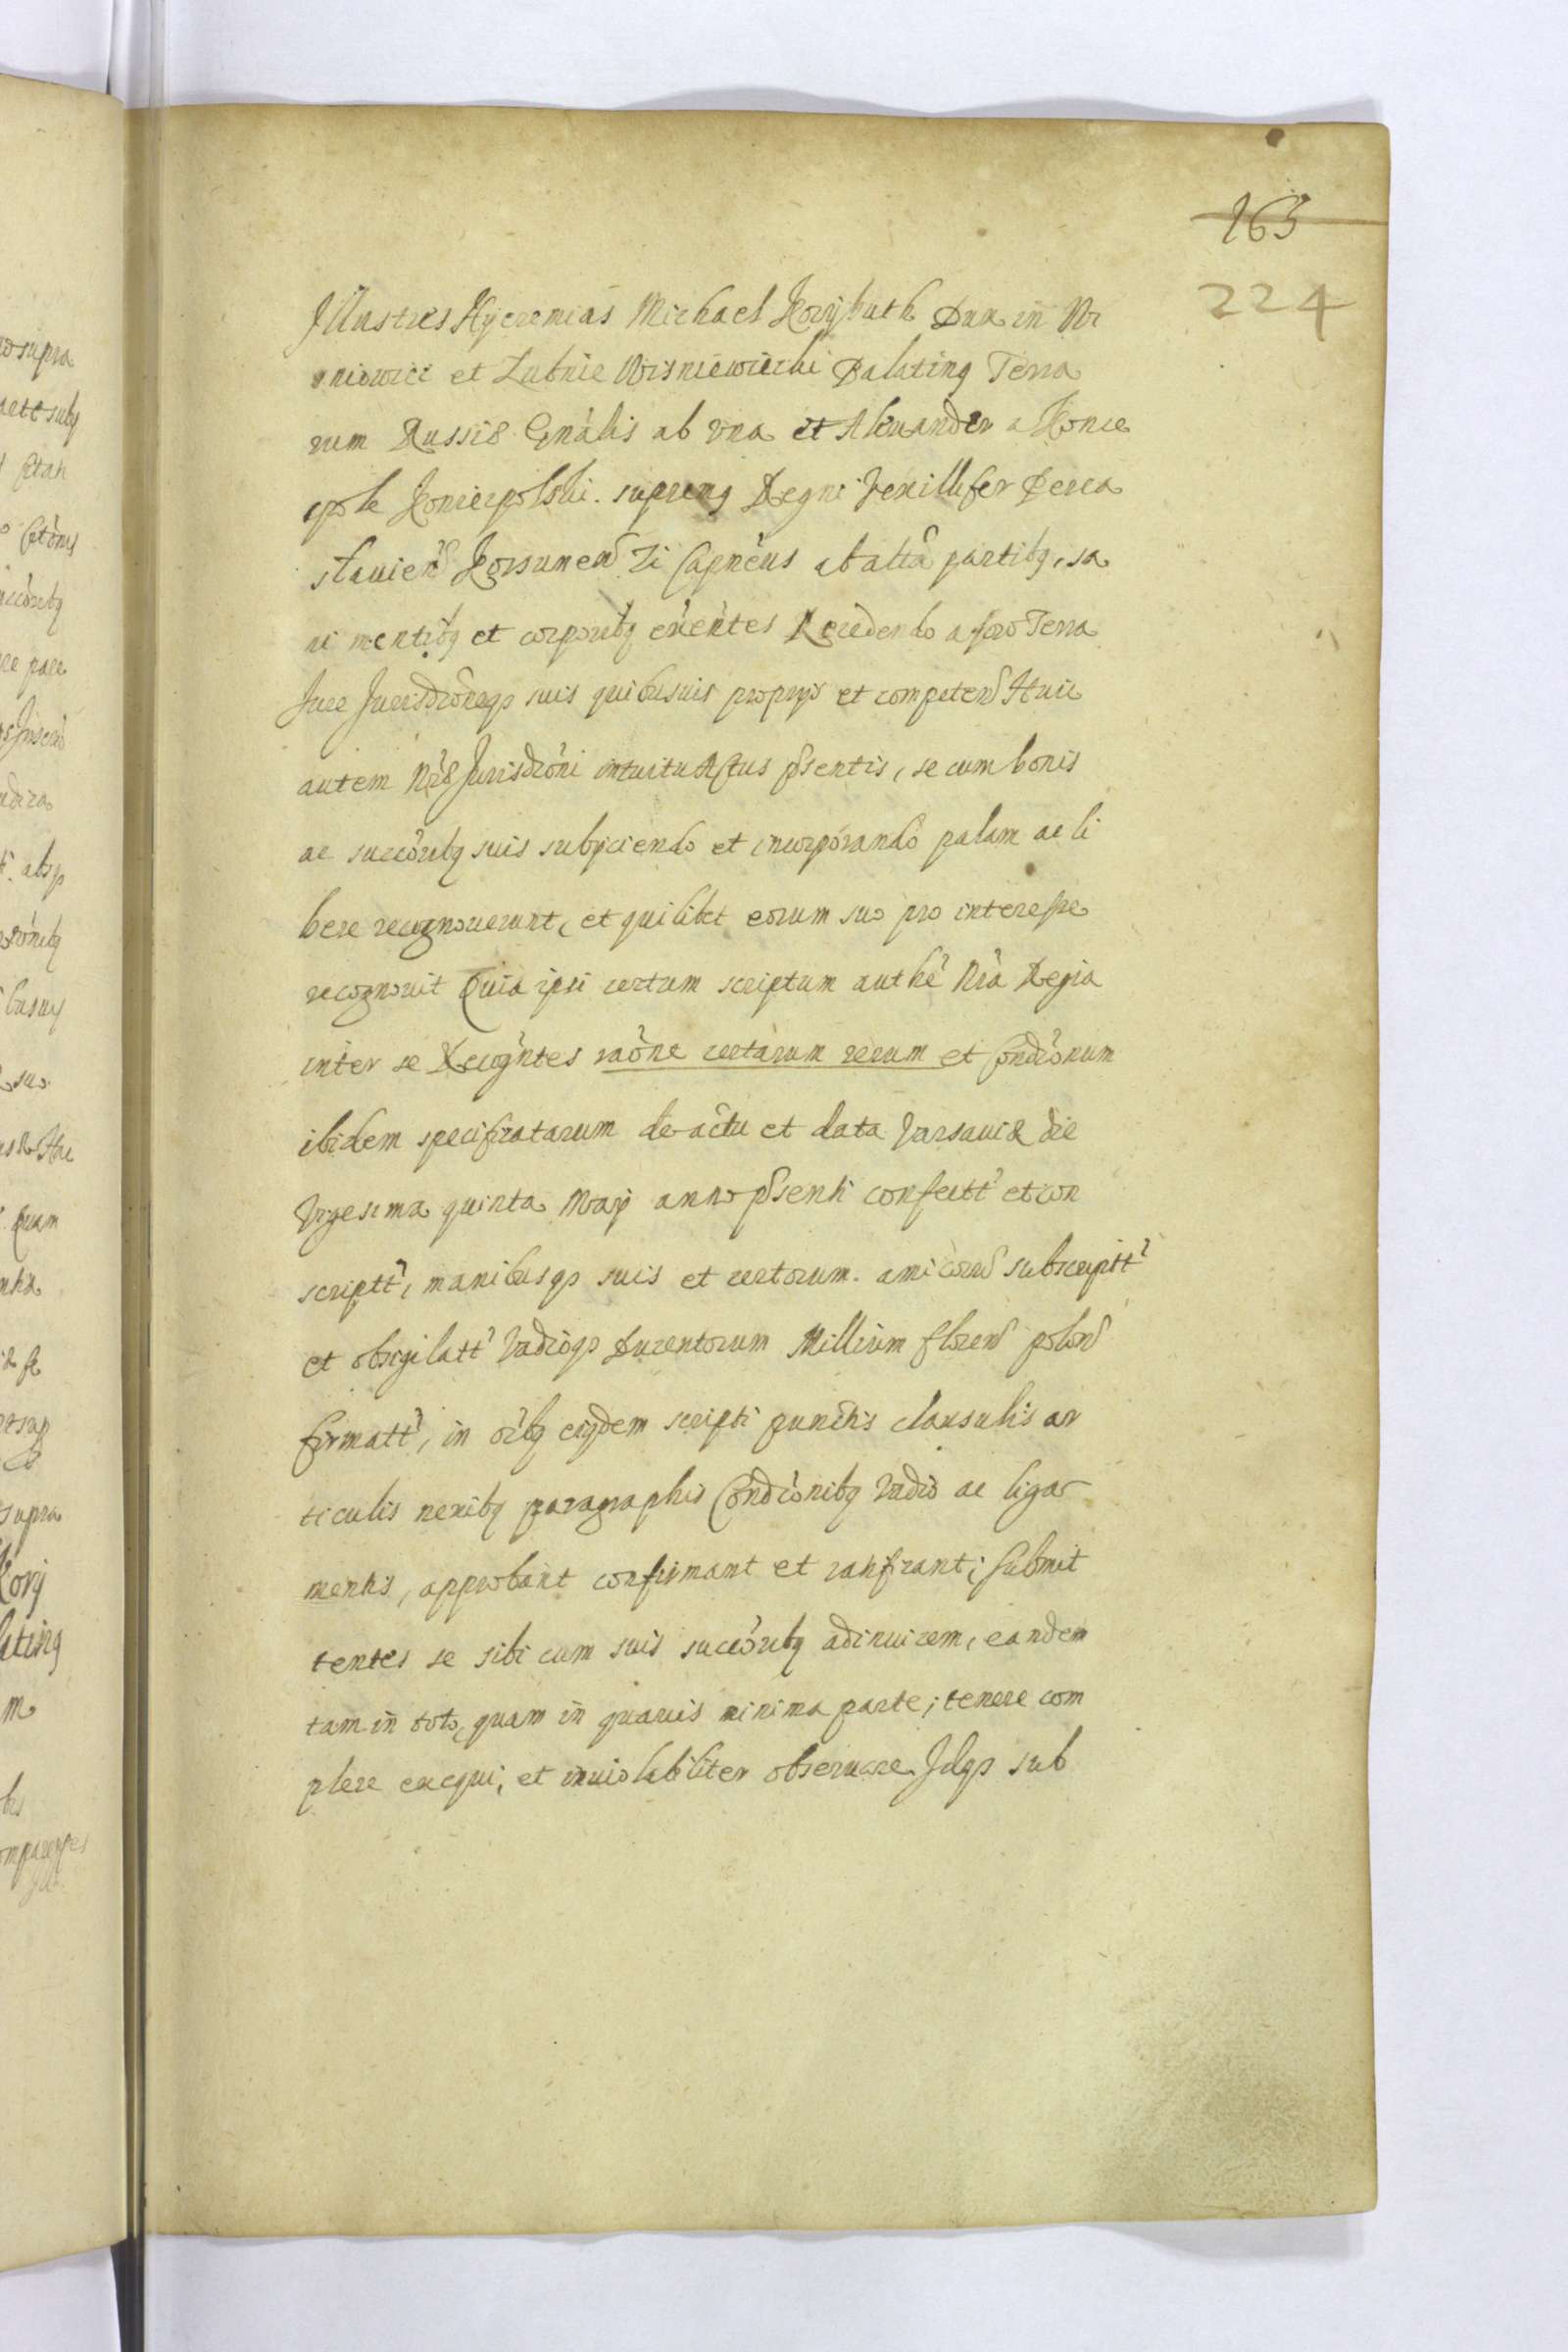 163
224
Illustres Hyeremias Michael Korÿbuth Dux in Wi
sniowici et Lubnie Wisniewiecki Palatinq Terra
rum Russiæ Gnälis ab vna et Alexander a Konie
cpole Koniecpolski. supremq Regni Vexillifer Perea
slauien Korsunen Zi Capneus ab alta partibq, sa
ni mentibq et corporibq exentes Recedendo a foro Terra
Iure Iurisdroneqs suis quibusuis proprys et competen Huic
autem Nræ Iurisdioni intuitu Actus psentis, se cum bonis
ac succoribq suis subyciendo et incorporando palam ac li
bere recognouerunt, et quilibet eorum suo pro interesse
recognouit Quia ipsi certum scriptum authe Nra Regia
inter se Recogntes raone certarum rerum et Condionum
ibidem specificatarum de actu et data Varsauiæ die
Vigesima quinta May anno psenti confectt et con
scriptt, manibusqs suis et certorum. amicoru subscriptt
et obsigilatt Vadioqs Ducentorum Millium floren polon
firmatt, in oibq eiqdem scripti punctis clausulis ar
ticulis nexibq paragraphis Condionibq Vadio ac liga
mentis, approbant confirmant et ratificant; Submit
tentes se sibi cum suis succoribq adinuicem, eandem
tam in toto, quam in quauis minima parte; tenere com
plere exequi, et inuiolabiliter obseruare Idqs sub